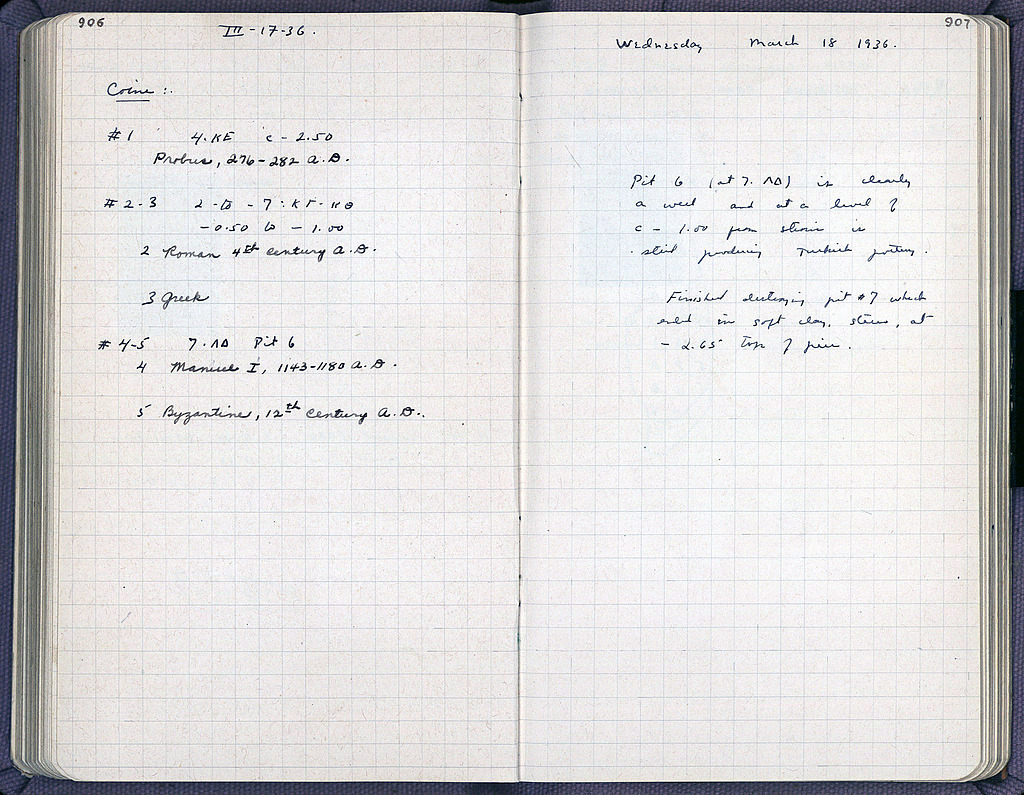 906
III-17-36.
Coins:.
#1 4.KE c - 2.50
Probus, 276-282 A.D.
#2-3 2-to-7:KF-KΘ
-0.50 to -1.00
2 Roman 4th century A.D.
3 Greek
#4-5 7.ΛΔ Pit 6
4 Manuel I, 1143-1180 A.D.
5 Byzantine, 12th century A.D..
907
Wednesday March 18 1936.
Pit 6 (at 7.ΛΔ) is clearly
a well and at a level of
c - 1.00 from stosis is
still producing Turkish pottery.
Finished clearing pit #7 which
ended in soft clay, at
- 2.65 top of